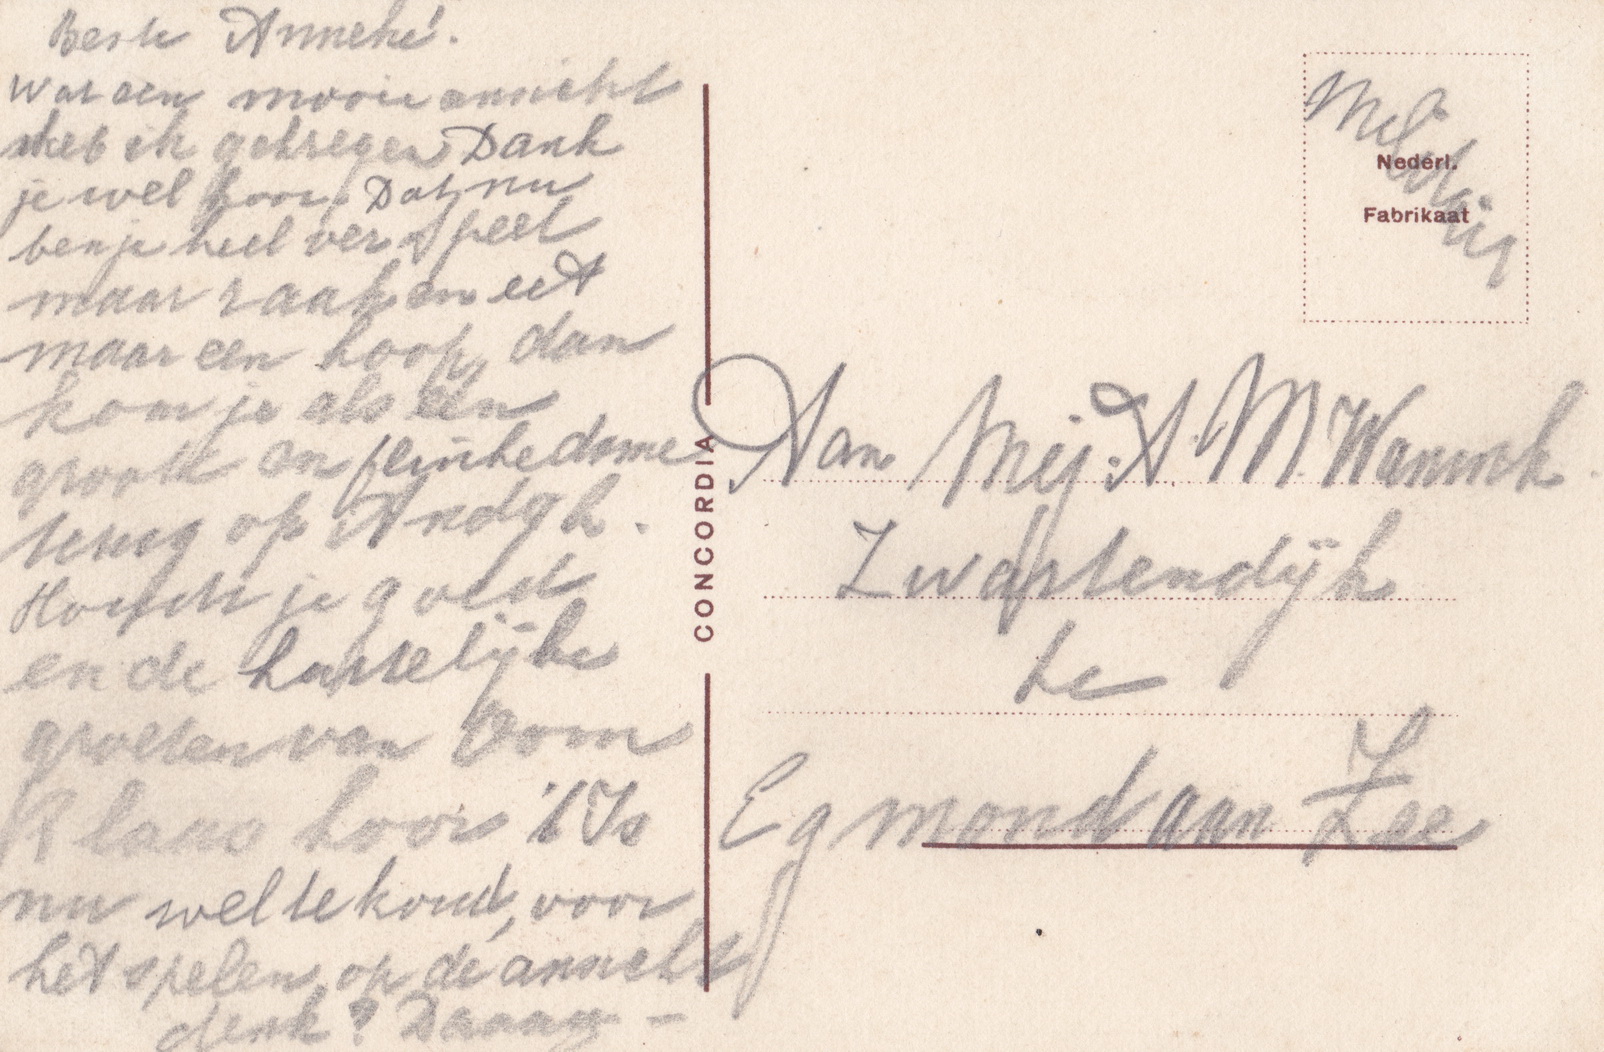 Beste Anneke'.
Wat een mooie ansicht
heb ik gekregen Dank
je wel hoor, Dat, nu
ben je heel ver Speel
maar raak en eet
maar een hoop, dan
kom je als een
groote en flinke dame
terug op Andijk.
Houdt je goed
en de hartelijke
groeten van Oom
Klaas hoor 't Is
nu wel te koud, voor
het spelen, op de ansicht
denk? Daaag -
CONCORDIA
Nederl.
Fabrikaat
Aan Mej: A. M. Wannink.
Zwartendijk
te
Egmond aan Zee